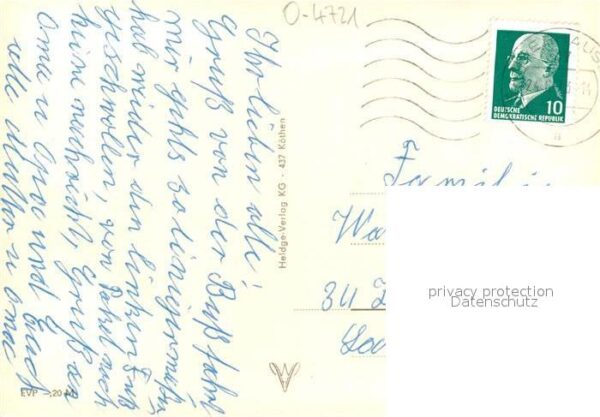 O-4721
DEUTSCHE
DEMOKRATISCHE REPUBLIK
10
Ihr lieben alle!
Gruß von der Bußfahrt
mir gehts so
hab wieder den linken Fuß
geschwollen, von auch
keine nachricht, Gruß an
Oma u Opa und Euch
alle Mutter u oma
Heldge-Verlag KG · 437 Köthen
EVP -,20 M
Familie
Wa
34
La
privacy protection
Datenschutz